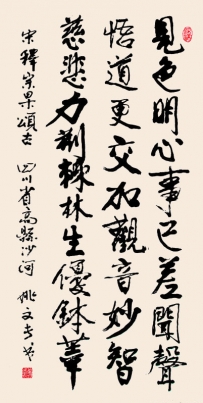 見色明心事已差聞聲
悟道更交加觀音妙智
慈悲力荊棘林生優鉢華
宋釋宗杲頌古 四川省高縣沙河 姚文長書